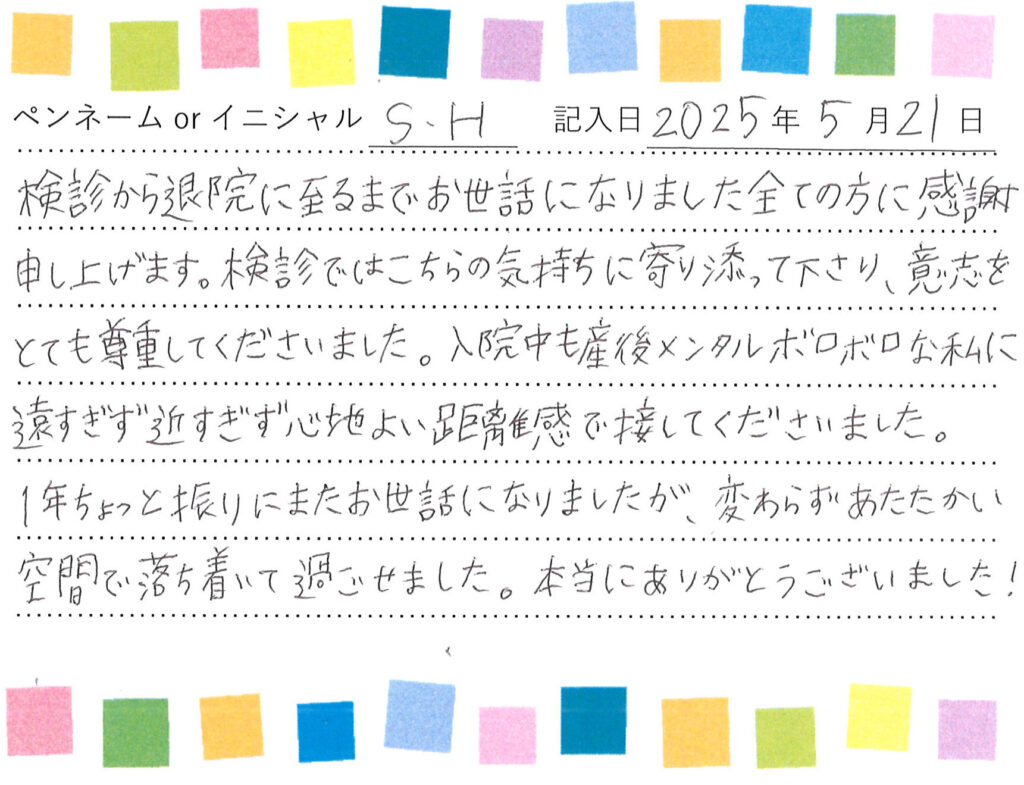 ペンネーム or イニシャル S.H 記入日 2025年 5月21日
検診から退院に至るまでお世話になりました全ての方に感謝
申し上げます。検診ではこちらの気持ちに寄り添って下さり、意志を
とても尊重してくださいました。入院中も産後メンタルボロボロな私に
遠すぎず近すぎず心地よい距離感で接してくださいました。
1年ちょっと振りにまたお世話になりましたが、変わらずあたたかい
空間で落ち着いて過ごせました。本当にありがとうございました!